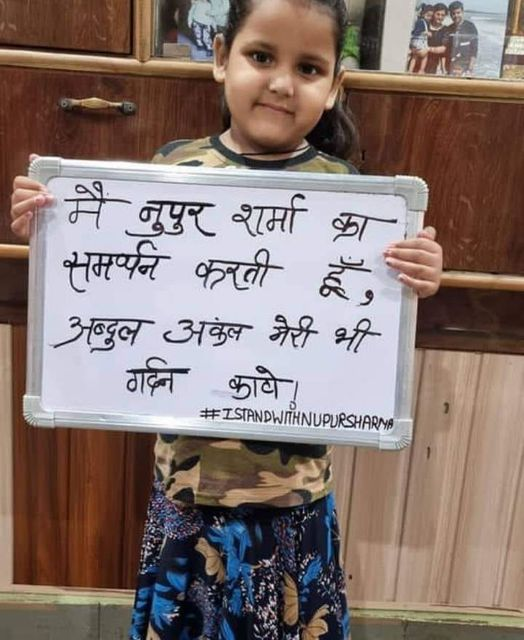 मैं नुपुर शर्मा का
समर्थन करती हूँ,
अब्दुल अंकल मेरी भी
गर्दन काटो!
#ISTANDWITHNUPURSHARMA